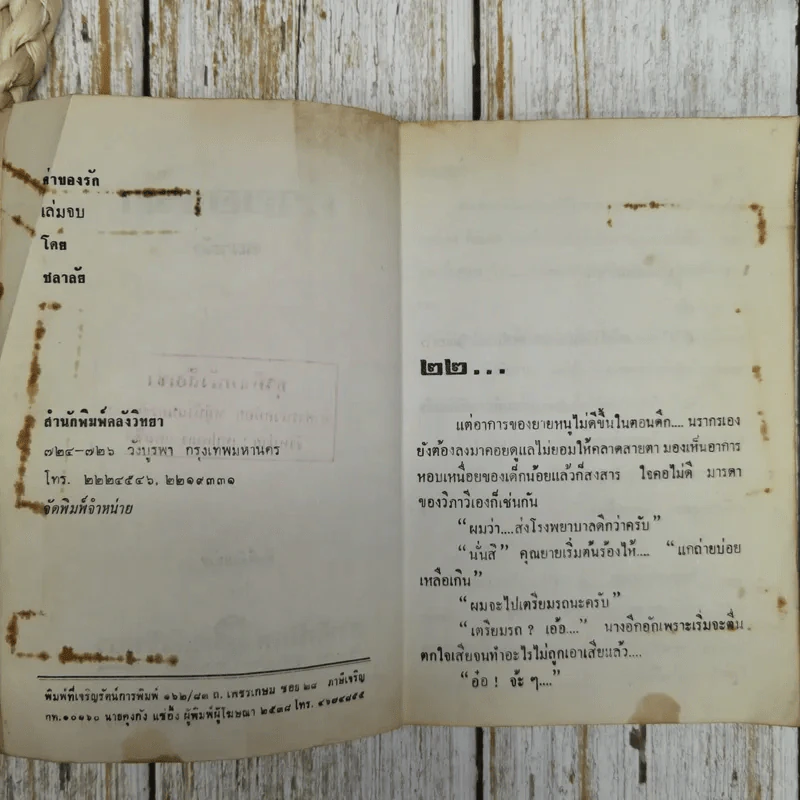 ค่าของรัก
เล่มจบ
โดย
ชลาลัย
สำนักพิมพ์คลังวิทยา
๗๒๔-๗๒๖ วังบูรพา กรุงเทพมหานคร
โทร. ๒๒๒๔๕๔๖, ๒๒๑๙๓๓๑
จัดพิมพ์จำหน่าย
พิมพ์ที่เจริญรัตน์การพิมพ์ ๑๖๒/๘๓ ถ. เพชรเกษม ซอย ๒๘ ภาษีเจริญ
กท. ๑๐๑๖๐ นายคุงกัง แซ่อึ้ง ผู้พิมพ์ผู้โฆษณา ๒๕๓๘ โทร. ๔๖๗๔๘๕๕
๒๒...
แต่อาการของยายหนูไม่ดีขึ้นในตอนดึก.... นรากรเอง
ยังต้องลงมาคอยดูแลไม่ยอมให้คลาดสายตา มองเห็นอาการ
หอบเหนื่อยของเด็กน้อยแล้วก็สงสาร ใจคอไม่ดี มารดา
ของวิภาวีเองก็เช่นกัน
“ผมว่า....ส่งโรงพยาบาลดีกว่าครับ”
“นั่นสิ” คุณยายเริ่มต้นร้องไห้.... “แกถ่ายบ่อย
เหลือเกิน”
“ผมจะไปเตรียมรถนะครับ”
“เตรียมรถ ? เอ้อ....” นางอึกอักเพราะเริ่มจะตื่น
ตกใจเสียจนทำอะไรไม่ถูกเอาเสียแล้ว....
“อ๋อ ! จ้ะ ๆ....”